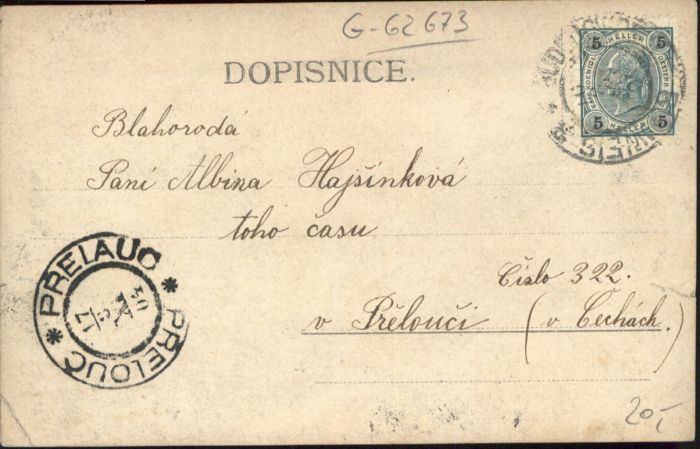 G-62673
DOPISNICE.
5 HELLER 5
5 HELLER 5
Blahorodá
Paní Albina Hajšínková
toho času
Číslo 322.
v Přelouči (v Čechách.)
PŘELAUČ * PŘELOUČ *
17
04
20,-